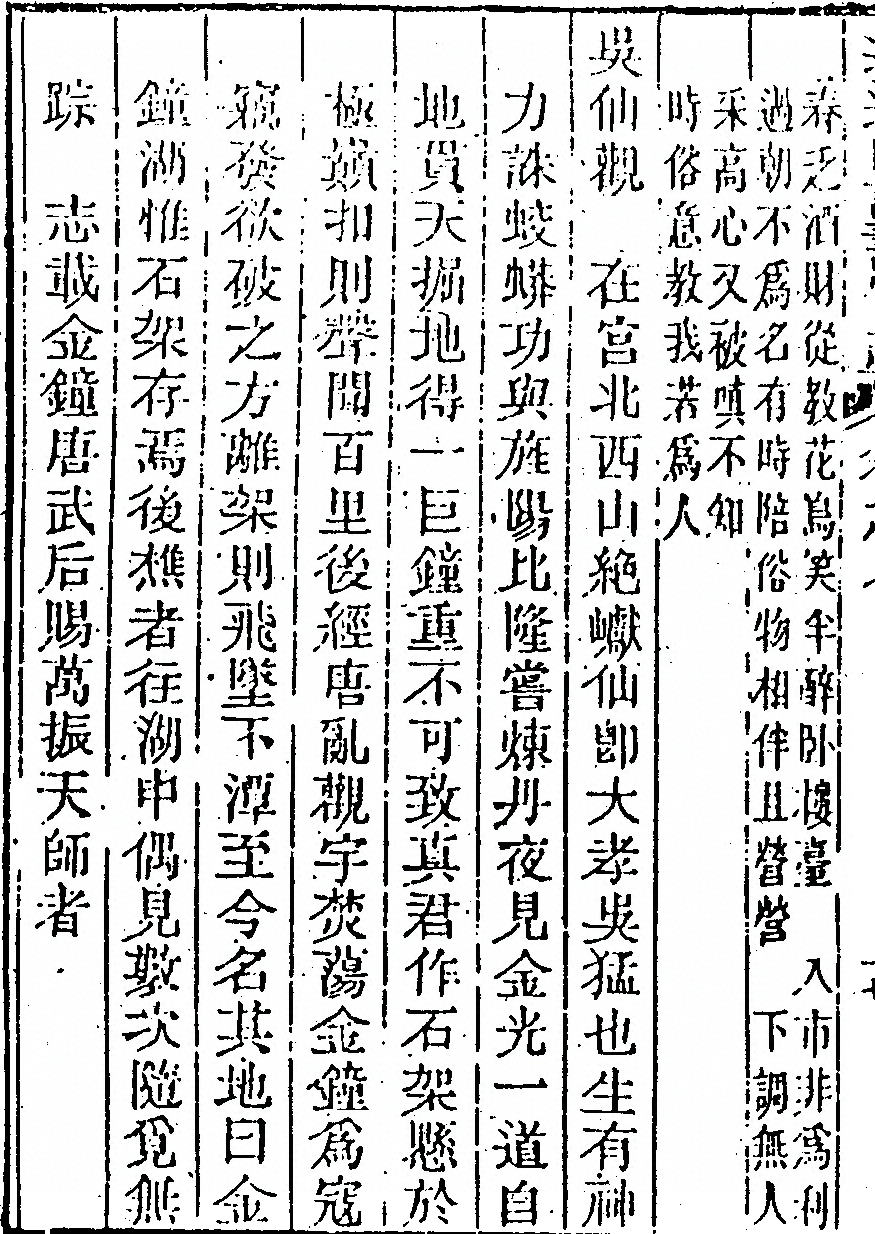 春乏酒財從教花鳥笑半醉卧樓臺　入市非爲利
過朝不爲名有時陪俗物相伴且營營　下調無人
采高心又被嗔不知
時俗意教我若爲人
吳仙觀　在宮北西山絶巘仙卽大孝吳猛也生有神
力誅蛟蟒功與旌陽比隆嘗煉丹夜見金光一道自
地貫天掘地得一巨鐘重不可致真君作石架懸於
極巔扣則聲聞百里後經唐亂觀宇焚蕩金鐘爲寇
窺發欲破之方離架則飛墜下潭至今名其地曰金
鐘湖惟石架存焉後樵者往湖中偶見數次隨覓無
踪　志載金鐘唐武后賜萬振天師者